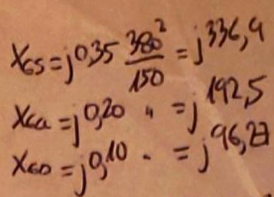 X_GS = j0,35 380²/150 = j336,9
X_Ga = j0,20 " = j192,5
X_G0 = j0,10 - = j96,27